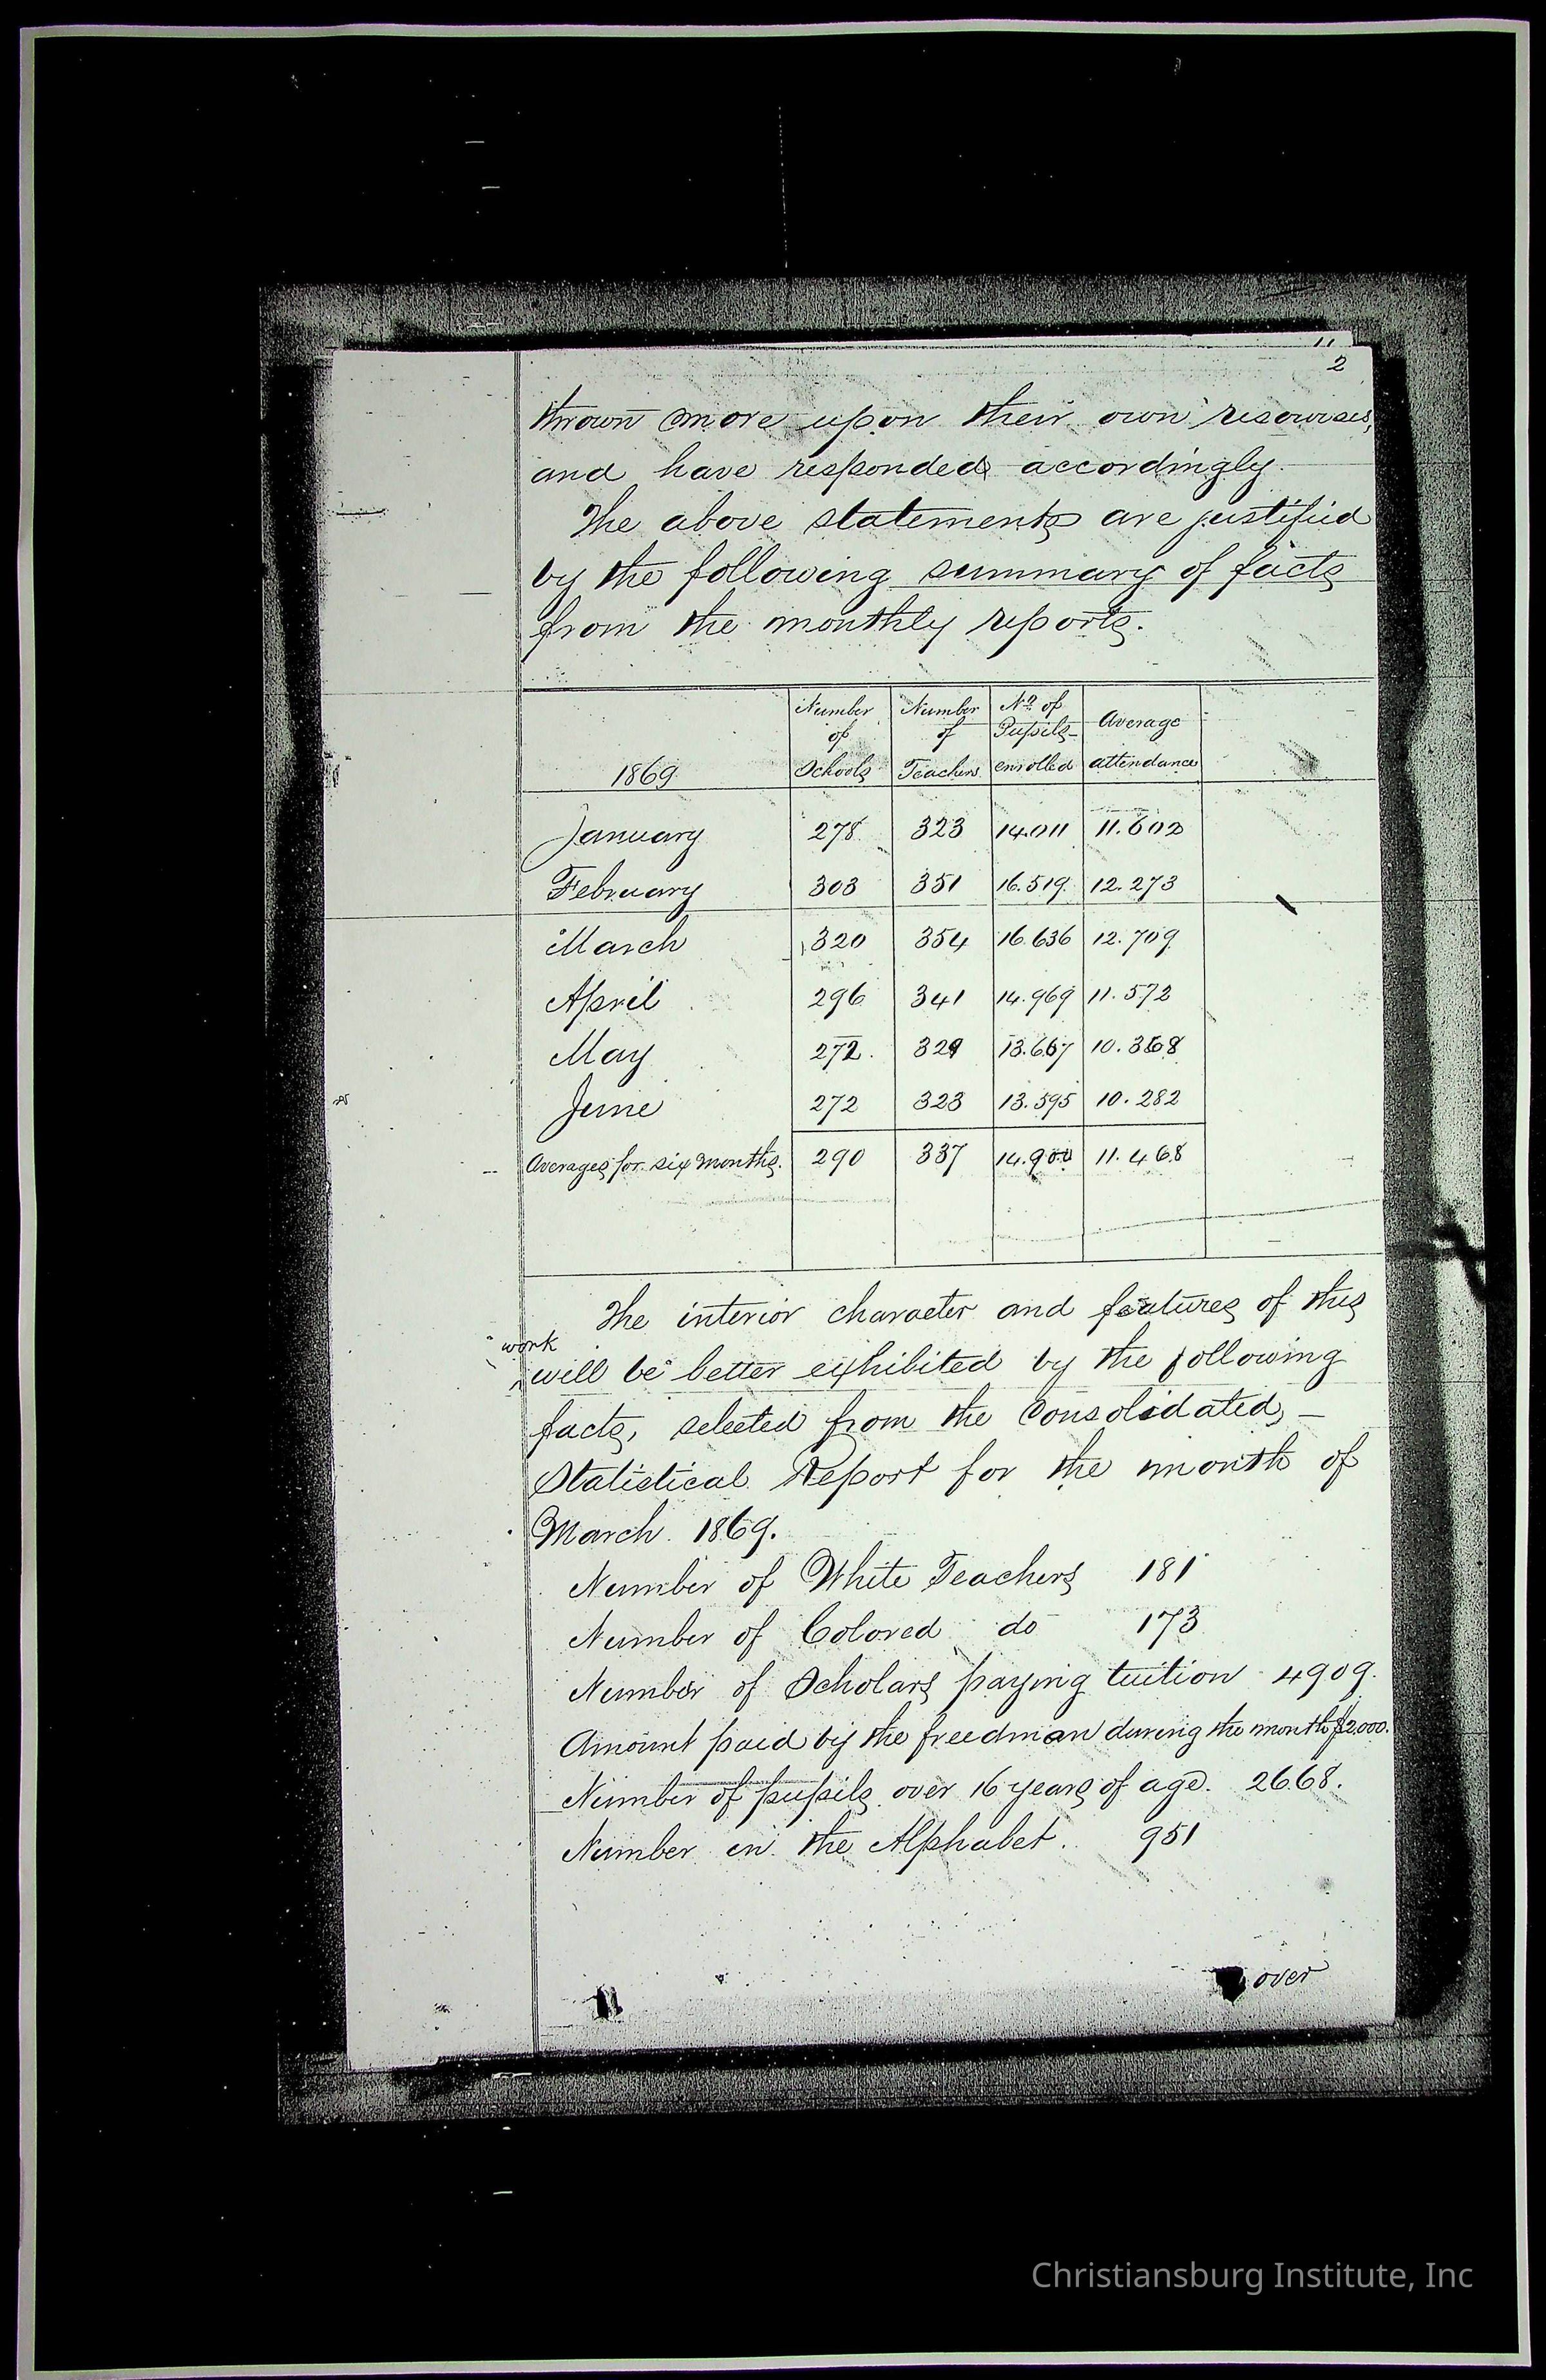 11
2
thrown more upon their own resourses,
and have responded accordingly.
The above statements are justified
by the following summary of facts
from the monthly reports.
1869 Number of Schools Number of Teachers No of Pupils enrolled Average attendance
January 278 323 14.011 11.602
February 303 351 16.519 12.273
March 320 354 16.636 12.709
April 296 341 14.969 11.572
May 272 329 13.667 10.368
June 272 323 13.595 10.282
Averages for six months. 290 337 14.900 11.468
The interior character and features of this
work
will be better exhibited by the following
facts, selected from the Consolidated,
Statistical Report for the month of
March 1869.
Number of White Teachers 181
Number of Colored do 173
Number of Scholars paying tuition 4909.
Amount paid by the freedman during the month $2,000.
Number of pupils over 16 years of age. 2668.
Number in the Alphabet. 951
over
Christiansburg Institute, Inc